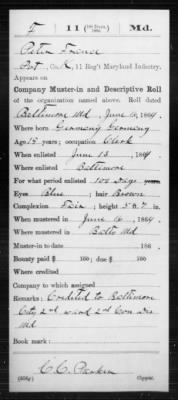 F | 11 (100 Days, 1864.) | Md.
Peter France
Pvt., Co. K, 11 Reg't Maryland Infantry.
Appears on
Company Muster-in and Descriptive Roll
of the organization named above. Roll dated
Baltimore Md, June 16, 1864.
Where born Germany Germany
Age 18 years; occupation Clerk
When enlisted June 13, 1864
Where enlisted Baltimore
For what period enlisted 100 Days years.
Eyes Blue; hair Brown
Complexion Fair; height 5 ft. 7 in.
When mustered in June 16, 1864.
Where mustered in Balto Md
Muster-in to date , 186 .
Bounty paid $ 100; due $ 100
Where credited
Company to which assigned
Remarks: Credited to Baltimore
City 2nd ward 2nd Con Dis
Md
Book mark:
Copyist.